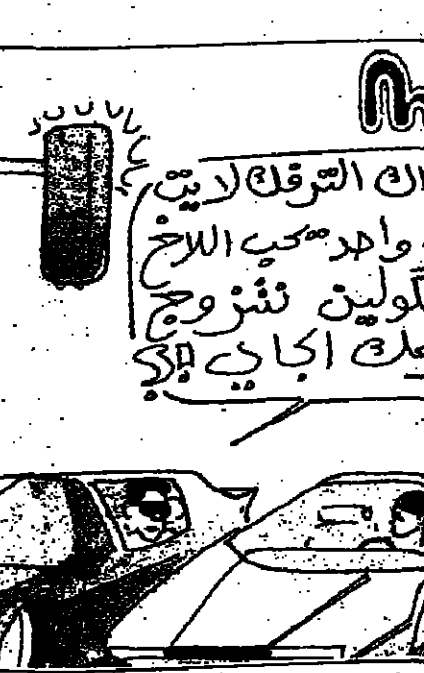 اك الترفك لايت
واحد يحب اللاخ
گولين نتزوج
اجاي ؟!؟